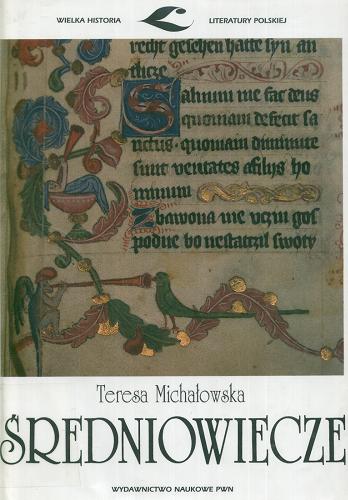 WIELKA HISTORIA LITERATURY POLSKIEJ
recht gesehen hatte syn an
tlicze
Saluum me fac deus
quoniam defecit sa
nctus · quoniam diminute
sunt veritates a filijs ho
minum
Zbawona me vczyń gos
podne bo nestatczil swøty
Teresa Michałowska
ŚREDNIOWIECZE
WYDAWNICTWO NAUKOWE PWN